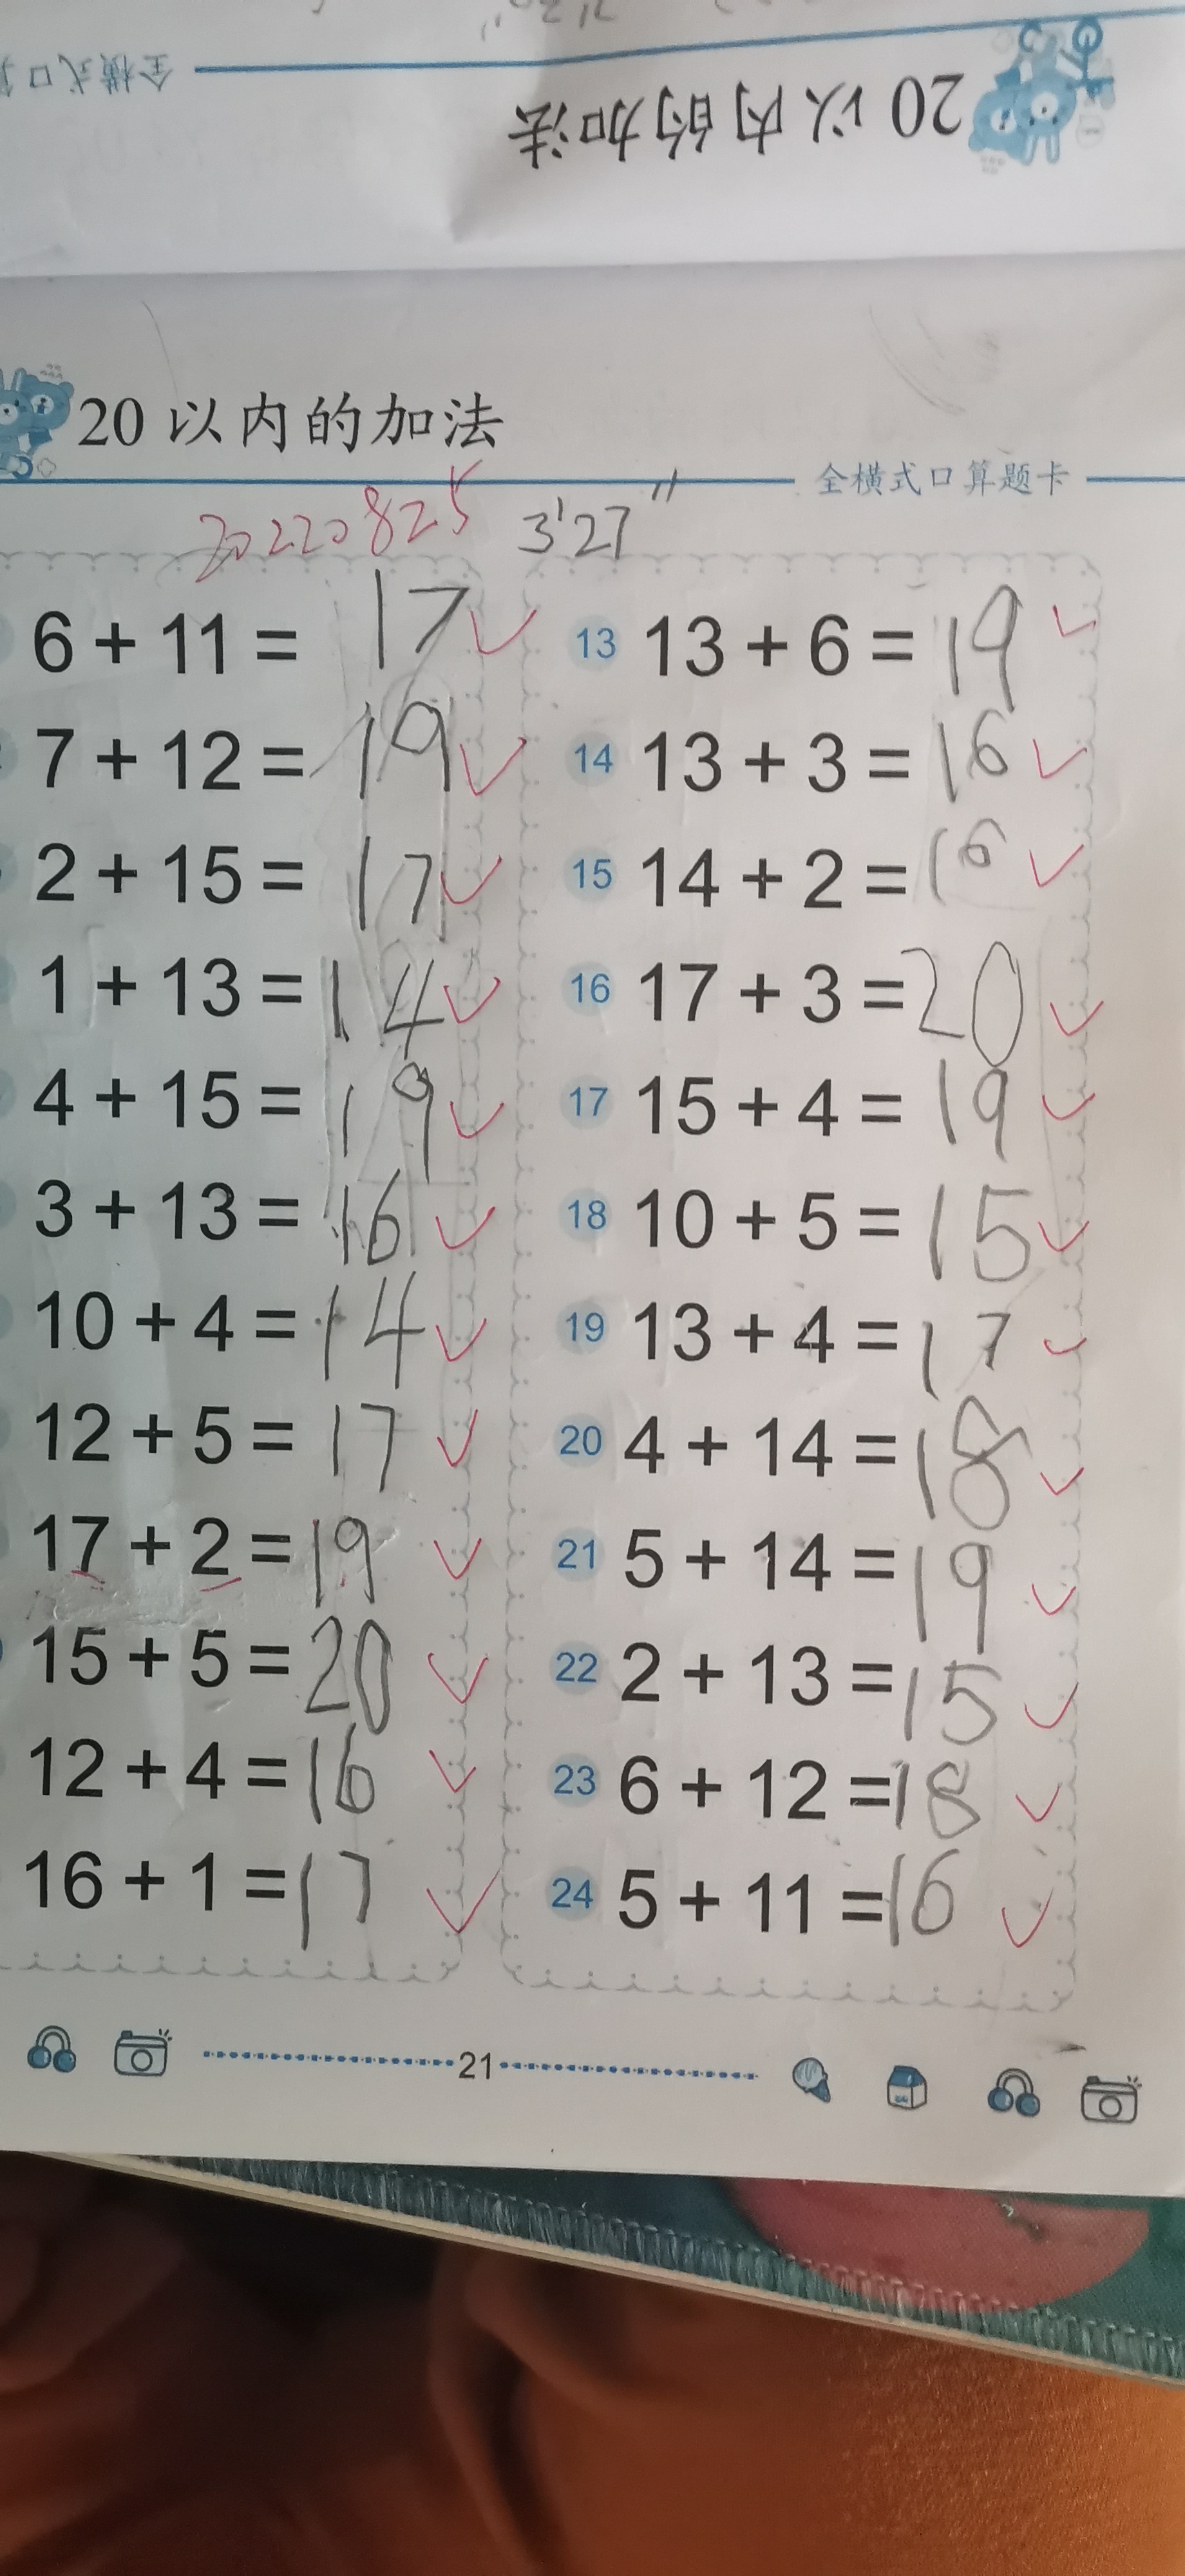 全横式口算
20 以内的加法
20 以内的加法
全横式口算题卡
20220825 3'27"
6 + 11 = 17
7 + 12 = 19
2 + 15 = 17
1 + 13 = 14
4 + 15 = 19
3 + 13 = 16
10 + 4 = 14
12 + 5 = 17
17 + 2 = 19
15 + 5 = 20
12 + 4 = 16
16 + 1 = 17
13 13 + 6 = 19
14 13 + 3 = 16
15 14 + 2 = 16
16 17 + 3 = 20
17 15 + 4 = 19
18 10 + 5 = 15
19 13 + 4 = 17
20 4 + 14 = 18
21 5 + 14 = 19
22 2 + 13 = 15
23 6 + 12 = 18
24 5 + 11 = 16
21